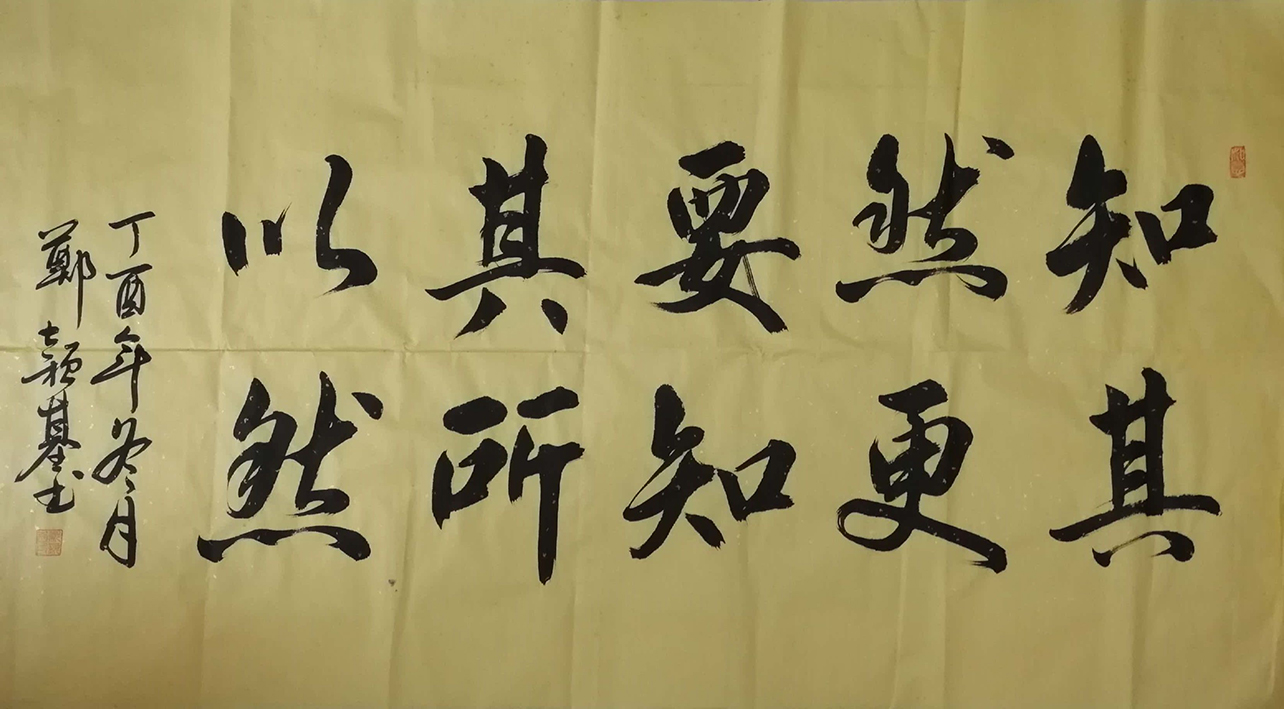 知其
然更
要知
其所
以然
丁酉年冬月
鄭基书